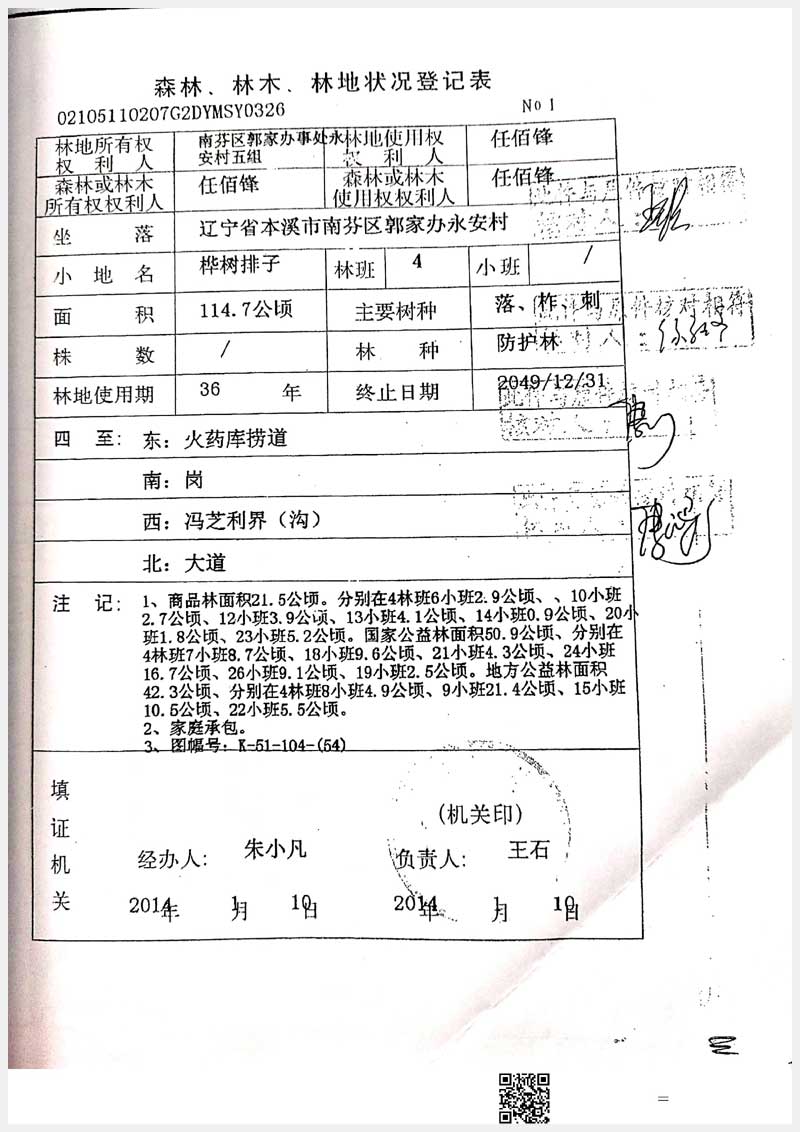 森林、林木、林地状况登记表
02105110207G2DYMSY0326 No 1
林地所有权权利人 南芬区郭家办事处永安村五组 林地使用权权利人 任佰锋
森林或林木所有权权利人 任佰锋 森林或林木使用权权利人 任佰锋
坐落 辽宁省本溪市南芬区郭家办永安村
小地名 桦树排子 林班 4 小班 /
面积 114.7公顷 主要树种 落、柞、刺
株数 / 林种 防护林
林地使用期 36 年 终止日期 2049/12/31
四至: 东: 火药库捞道
南: 岗
西: 冯芝利界（沟）
北: 大道
注记: 1、商品林面积21.5公顷。分别在4林班6小班2.9公顷、、10小班
2.7公顷、12小班3.9公顷、13小班4.1公顷、14小班0.9公顷、20小
班1.8公顷、23小班5.2公顷。国家公益林面积50.9公顷、分别在
4林班7小班8.7公顷、18小班9.6公顷、21小班4.3公顷、24小班
16.7公顷、26小班9.1公顷、19小班2.5公顷。地方公益林面积
42.3公顷、分别在4林班8小班4.9公顷、9小班21.4公顷、15小班
10.5公顷、22小班5.5公顷。
2、家庭承包。
3、图幅号: K-51-104-(54)
填证机关
(机关印)
经办人: 朱小凡 负责人: 王石
2014年 1月 10日 2014年 1月 10日